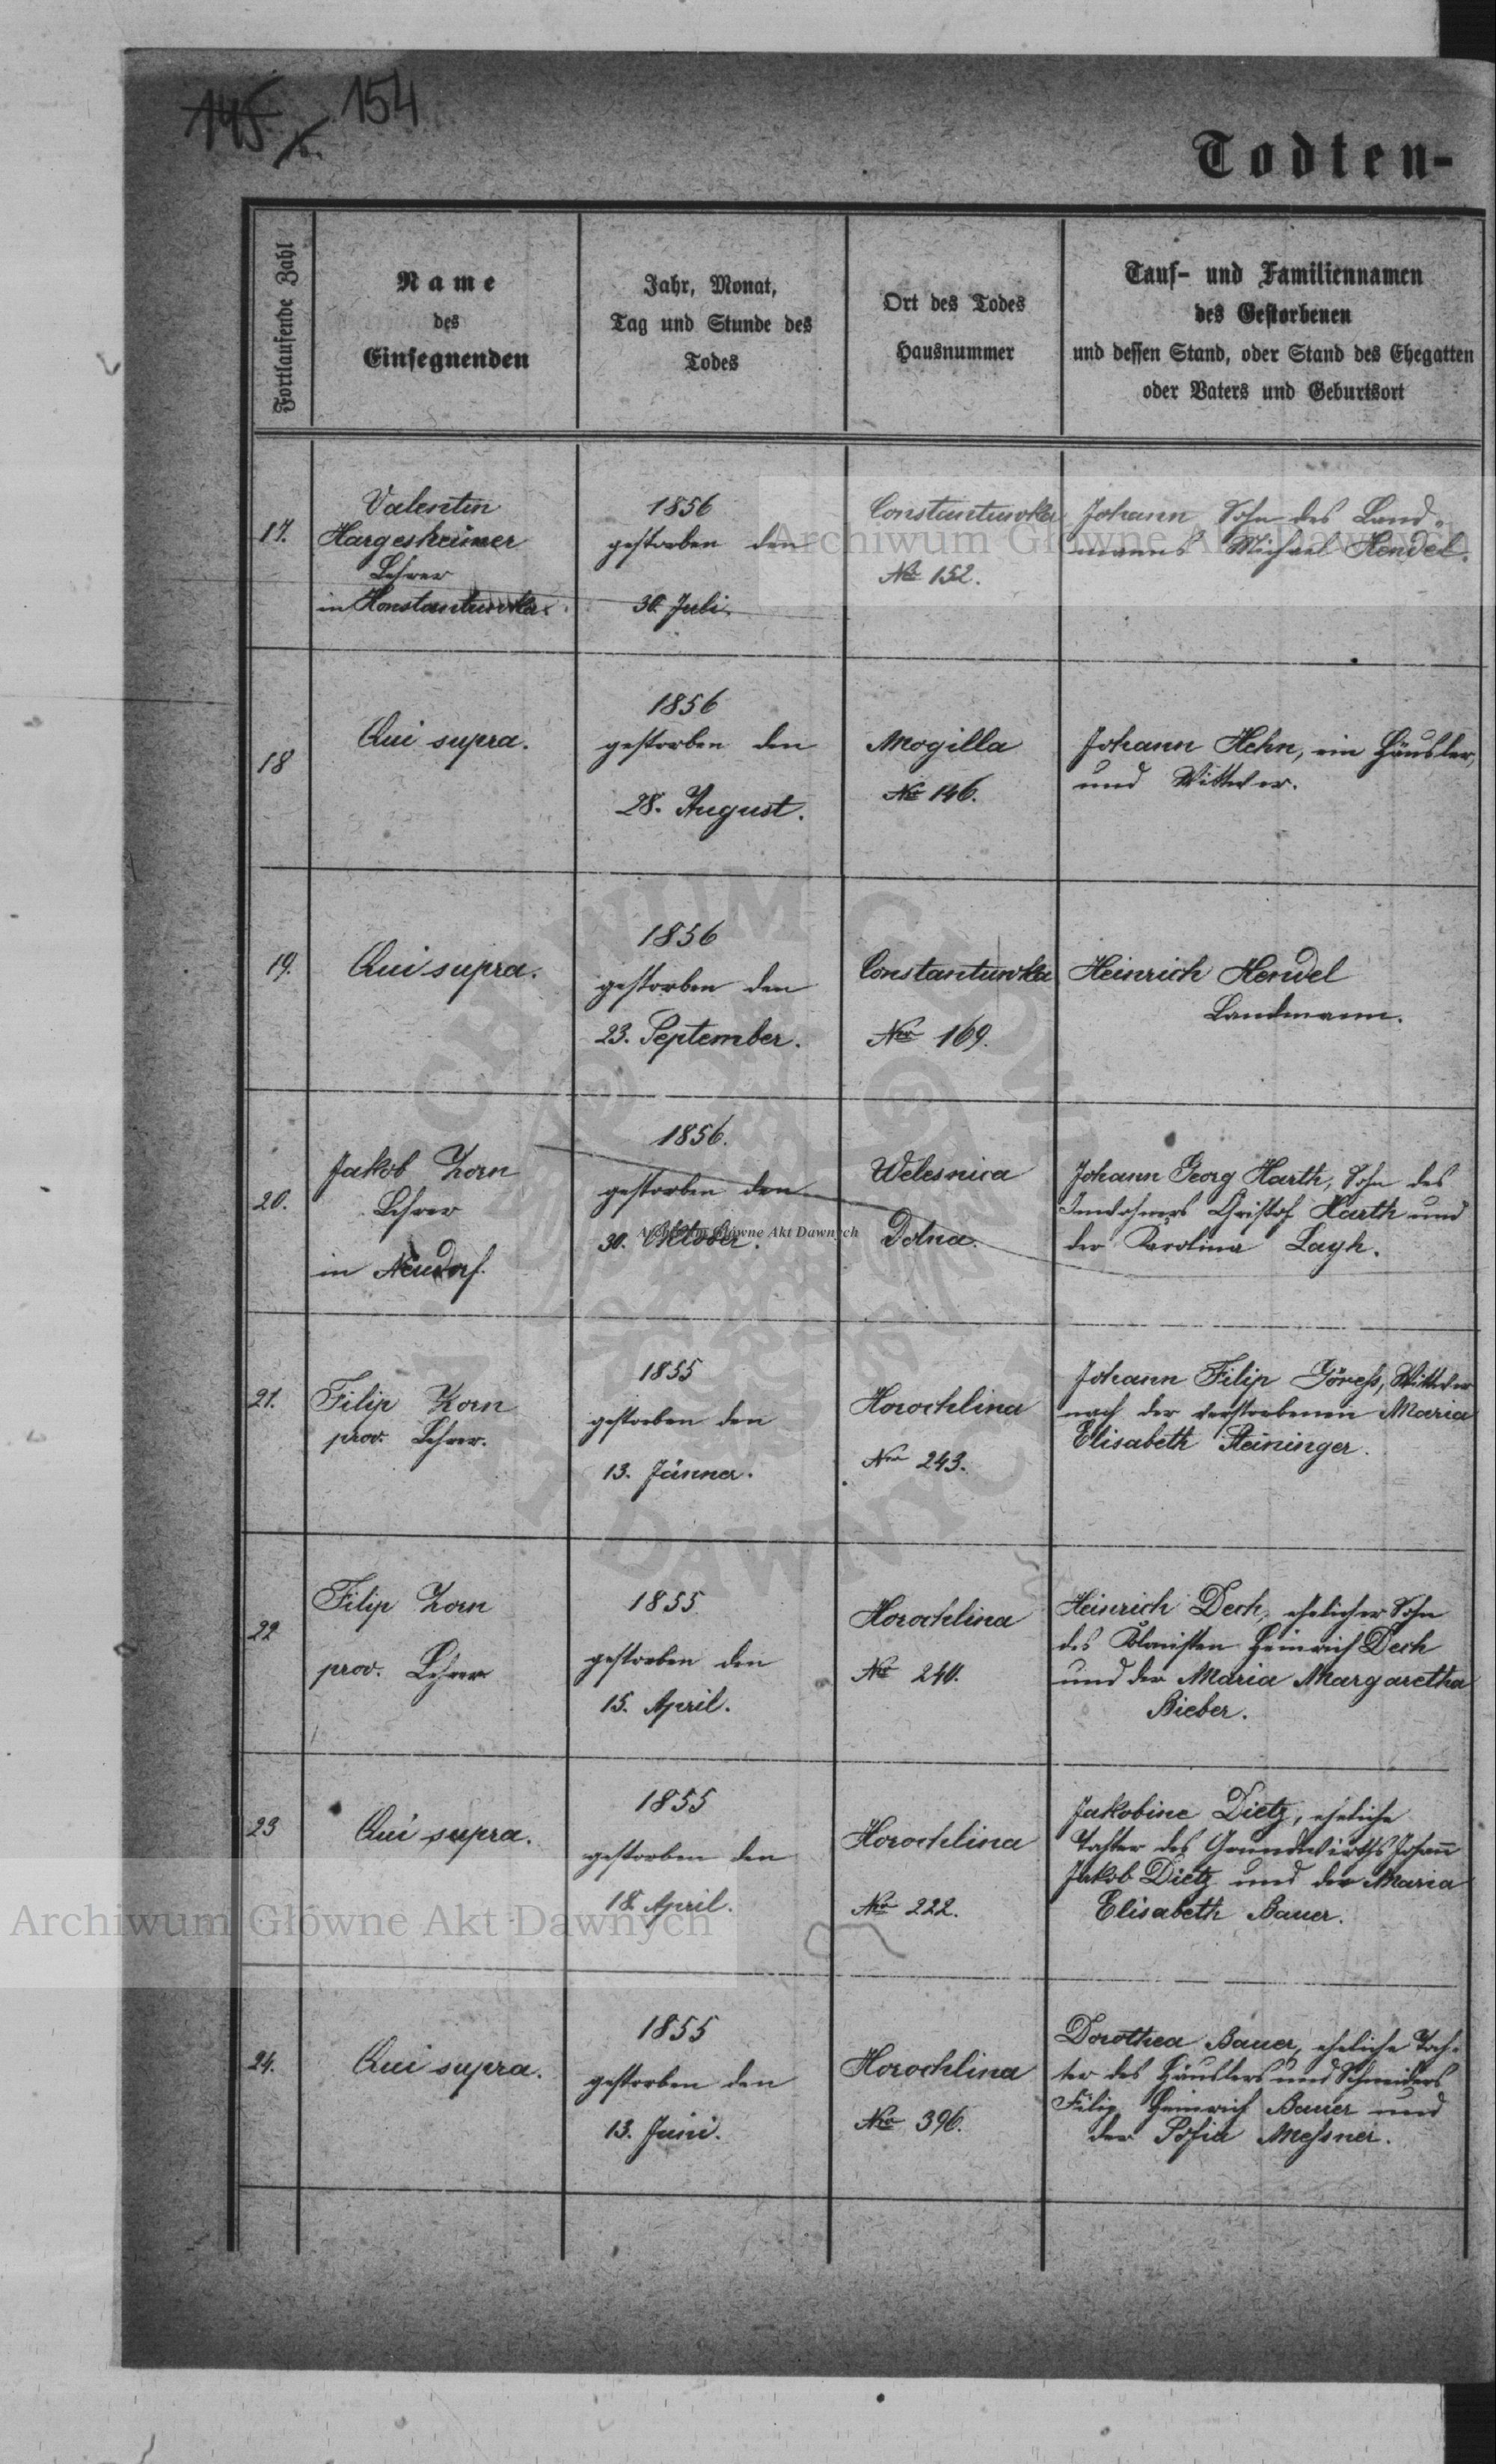 145
154
Todten-
Fortlaufende Zahl
Name
des
Einsegnenden
Jahr, Monat,
Tag und Stunde des
Todes
Ort des Todes
Hausnummer
Tauf- und Familiennamen
des Gestorbenen
und dessen Stand, oder Stand des Ehegatten
oder Vaters und Geburtsort
17.
Valentin
Hargesheimer
Lehrer
in Konstantuwka.
1856
gestorben den
30. Juli.
Constantuwka
Nro 152.
Johann Sohn des Land-
manns Michael Hendel.
18
Qui supra.
1856
gestorben den
28. August.
Mogilla
Nro 146.
Johann Hehn, ein Häusler,
und Wittwer.
19.
Qui supra.
1856
gestorben den
23. September.
Constantuwka
Nro 169.
Heinrich Hendel
Landmann.
20.
Jakob Zorn
Lehrer
in Neudorf.
1856.
gestorben den
30. Oktober.
Welesnica
Dolna.
Johann Georg Harth, Sohn des
Inwohners Christof Harth und
der Karolina Layh.
21.
Filip Zorn
prov. Lehrer.
1855
gestorben den
13. Jänner.
Horochlina
Nro 243.
Johann Filip Göress, Wittwer
nach der verstorbenen Maria
Elisabeth Steininger.
22
Filip Zorn
prov. Lehrer
1855
gestorben den
15. April.
Horochlina
Nro 240.
Heinrich Dech, ehelicher Sohn
des Kolonisten Heinrich Dech
und der Maria Margaretha
Bieber.
23
Qui supra.
1855
gestorben den
18. April.
Horochlina
Nro 222.
Jakobine Dietz, eheliche
Tochter des Grundwirths Johann
Jakob Dietz und der Maria
Elisabeth Bauer.
24.
Qui supra.
1855
gestorben den
13. Juni.
Horochlina
Nro 396.
Dorothea Bauer, eheliche Toch-
ter des Häuslers und Schneiders
Filip Heinrich Bauer und
der Sofia Messner.
Archiwum Główne Akt Dawnych
Archiwum Główne Akt Dawnych
Archiwum Główne Akt Dawnych
ARCHIWUM GŁÓWNE
AKT DAWNYCH